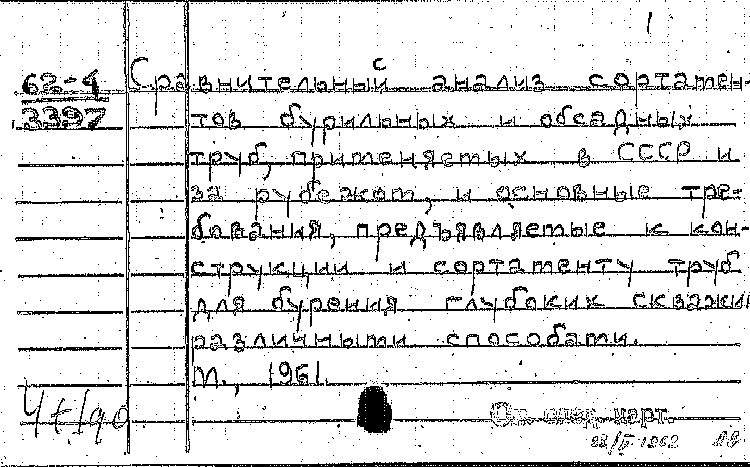 1
с
62-4
3397
Сравнительный анализ сортамен-
тов бурильных и обсадных
труб, применяемых в СССР и
за рубежом, и основные тре-
бования, предъявляемые к кон-
струкции и сортаменту труб
для бурения глубоких скважин
различными способами.
М., 1961.
От. спец. карт.
1962